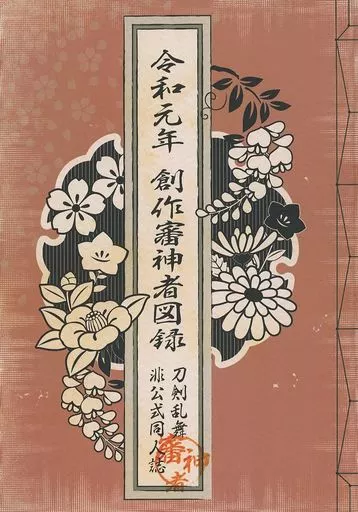 令和元年 創作審神者図録
刀剣乱舞
非公式同人誌
審神者